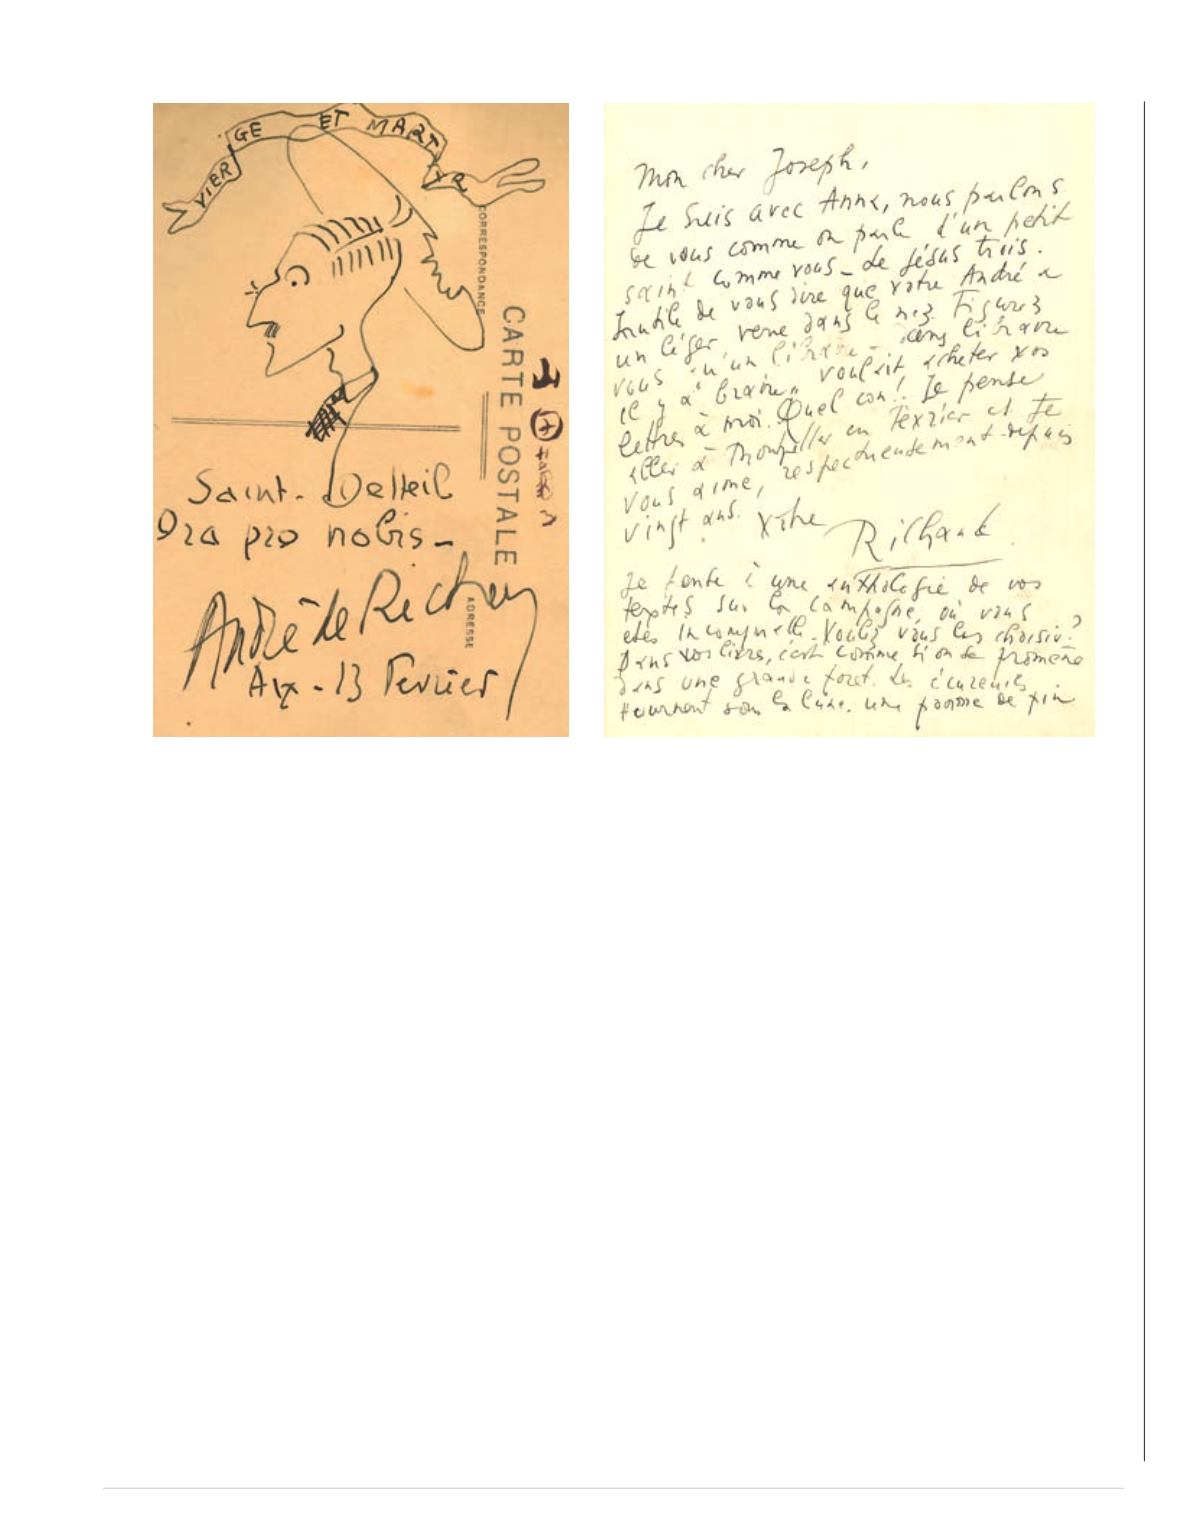 VIERGE ET MARTYR
CORRESPONDANCE
CARTE POSTALE
ADRESSE
Saint-Delteil
Ora pro nobis-
André de Richaud
Aix - 13 Fevrier
Mon cher Joseph,
Je suis avec Anna, nous parlons
de vous comme on parle d'un petit
saint comme vous - de Jésus trois.
Inutile de vous dire que votre André a
un léger verre dans le nez. Figurez
vous qu'un libraire - sans librairie
il y a voulait acheter vos
lettres à moi. Quel con! Je pense
aller à Montpellier en Fevrier et Je
vous aime, respectueusement depuis
vingt ans. Votre
Richaud
Je pense à une anthologie de vos
textes sur la campagne, où vous
etes incomparable. Voulez vous les choisir?
Dans vos livres, c'est comme si on se promene
dans une grande foret. Les écureuils
tournent sous la lune. une pomme de pin